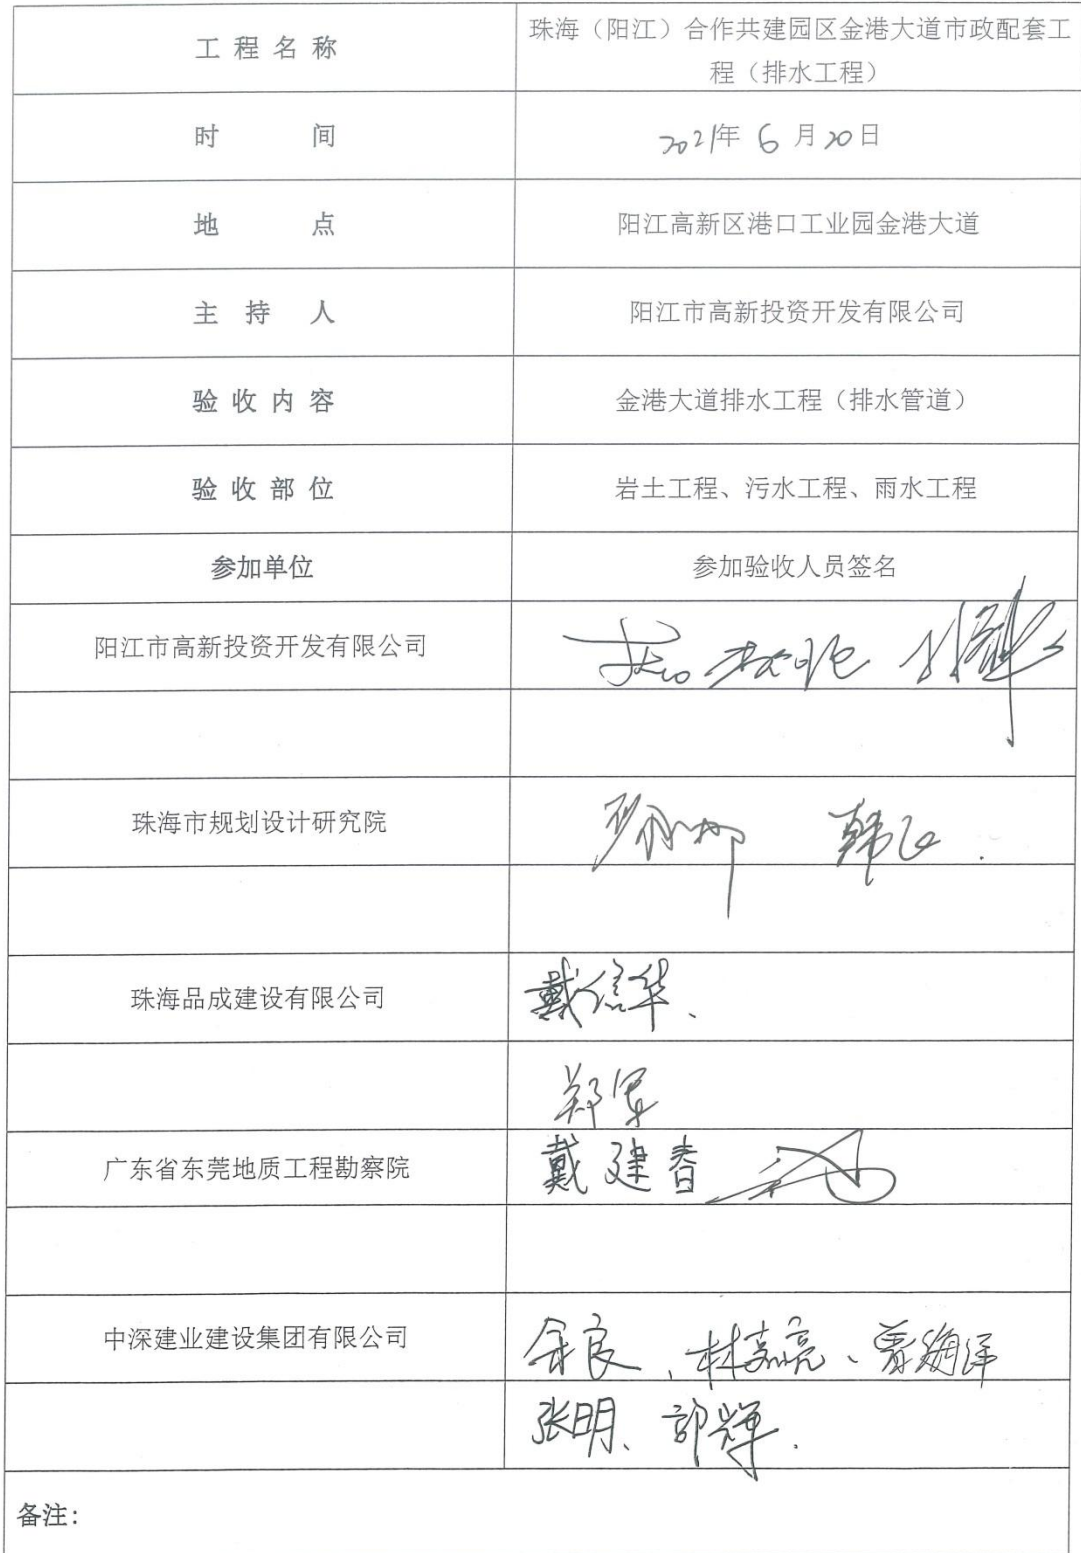 工程名称
珠海（阳江）合作共建园区金港大道市政配套工
程（排水工程）
时间
2021年6月20日
地点
阳江高新区港口工业园金港大道
主持人
阳江市高新投资开发有限公司
验收内容
金港大道排水工程（排水管道）
验收部位
岩土工程、污水工程、雨水工程
参加单位
参加验收人员签名
阳江市高新投资开发有限公司
珠海市规划设计研究院
珠海品成建设有限公司
戴信华、
郑军
广东省东莞地质工程勘察院
戴建春
中深建业建设集团有限公司
余良、林嘉亮、曾海洋
张明、郭辉.
备注: